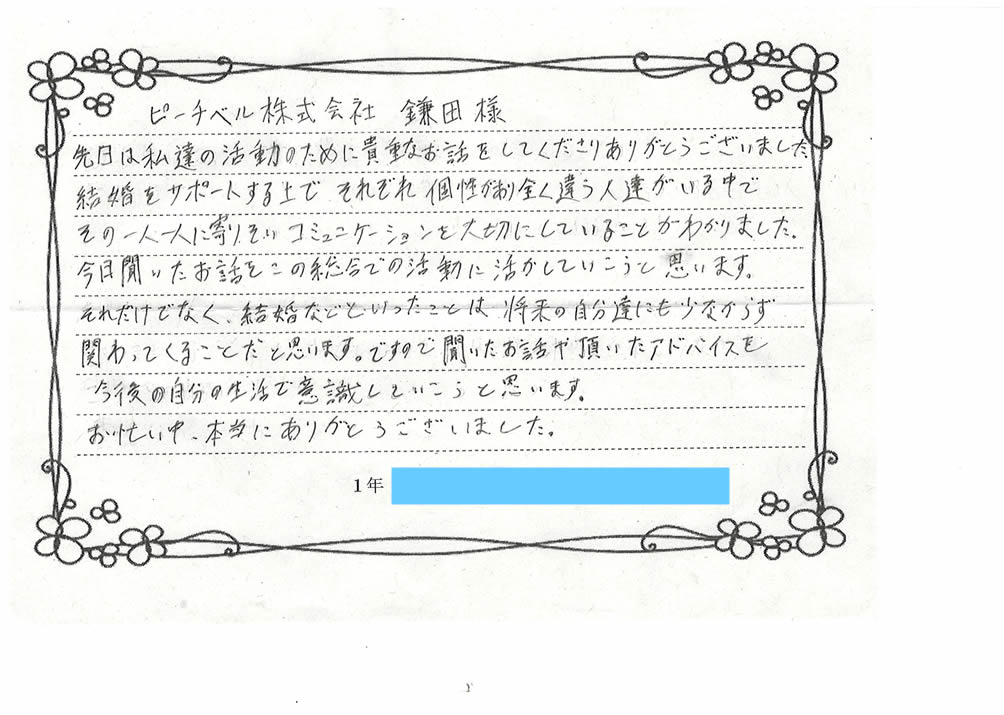 ピーチベル株式会社 鎌田様
先日は私達の活動のために貴重なお話をしてくださりありがとうございました
結婚をサポートする上で それぞれ個性があり全く違う人達がいる中で
その一人一人に寄りそいコミュニケーションを大切にしていることがわかりました。
今日聞いたお話をこの総合での活動に活かしていこうと思います。
それだけでなく、結婚などといったことは将来の自分達にも少なからず
関わってくることだと思います。ですので聞いたお話や頂いたアドバイスを
今後の自分の生活で意識していこうと思います。
お忙い中、本当にありがとうございました。
1年